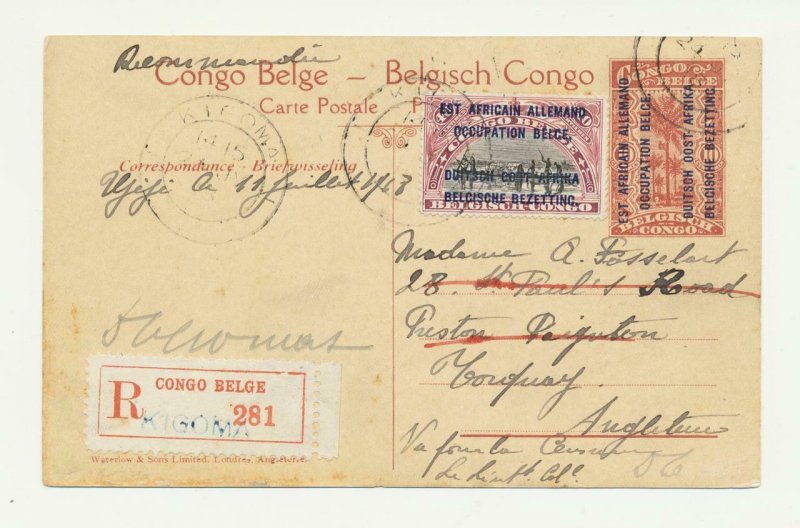 Recommandée
Congo Belge – Belgisch Congo
Carte Postale
Correspondance - Briefwisseling
KIGOMA
KIG
EST AFRICAIN ALLEMAND
OCCUPATION BELGE.
DUITSCH OOST-AFRIKA
BELGISCHE BEZETTING.
CONGO BELGE
BELGISCH-CONGO
CONGO
BELGE
EST AFRICAIN ALLEMAND
OCCUPATION BELGE.
DUITSCH OOST-AFRIKA
BELGISCHE BEZETTING.
BELGISCH
CONGO
Ujiji le 11 Juillet
Madame A. Fosselart
28. St Paul's Road
Preston Paignton
Torquay
Angleterre
Vu pour la Censure
Le Lieutt. Coll.
CONGO BELGE
R 281
KIGOMA
Waterlow & Sons Limited. Londres, Angleterre.